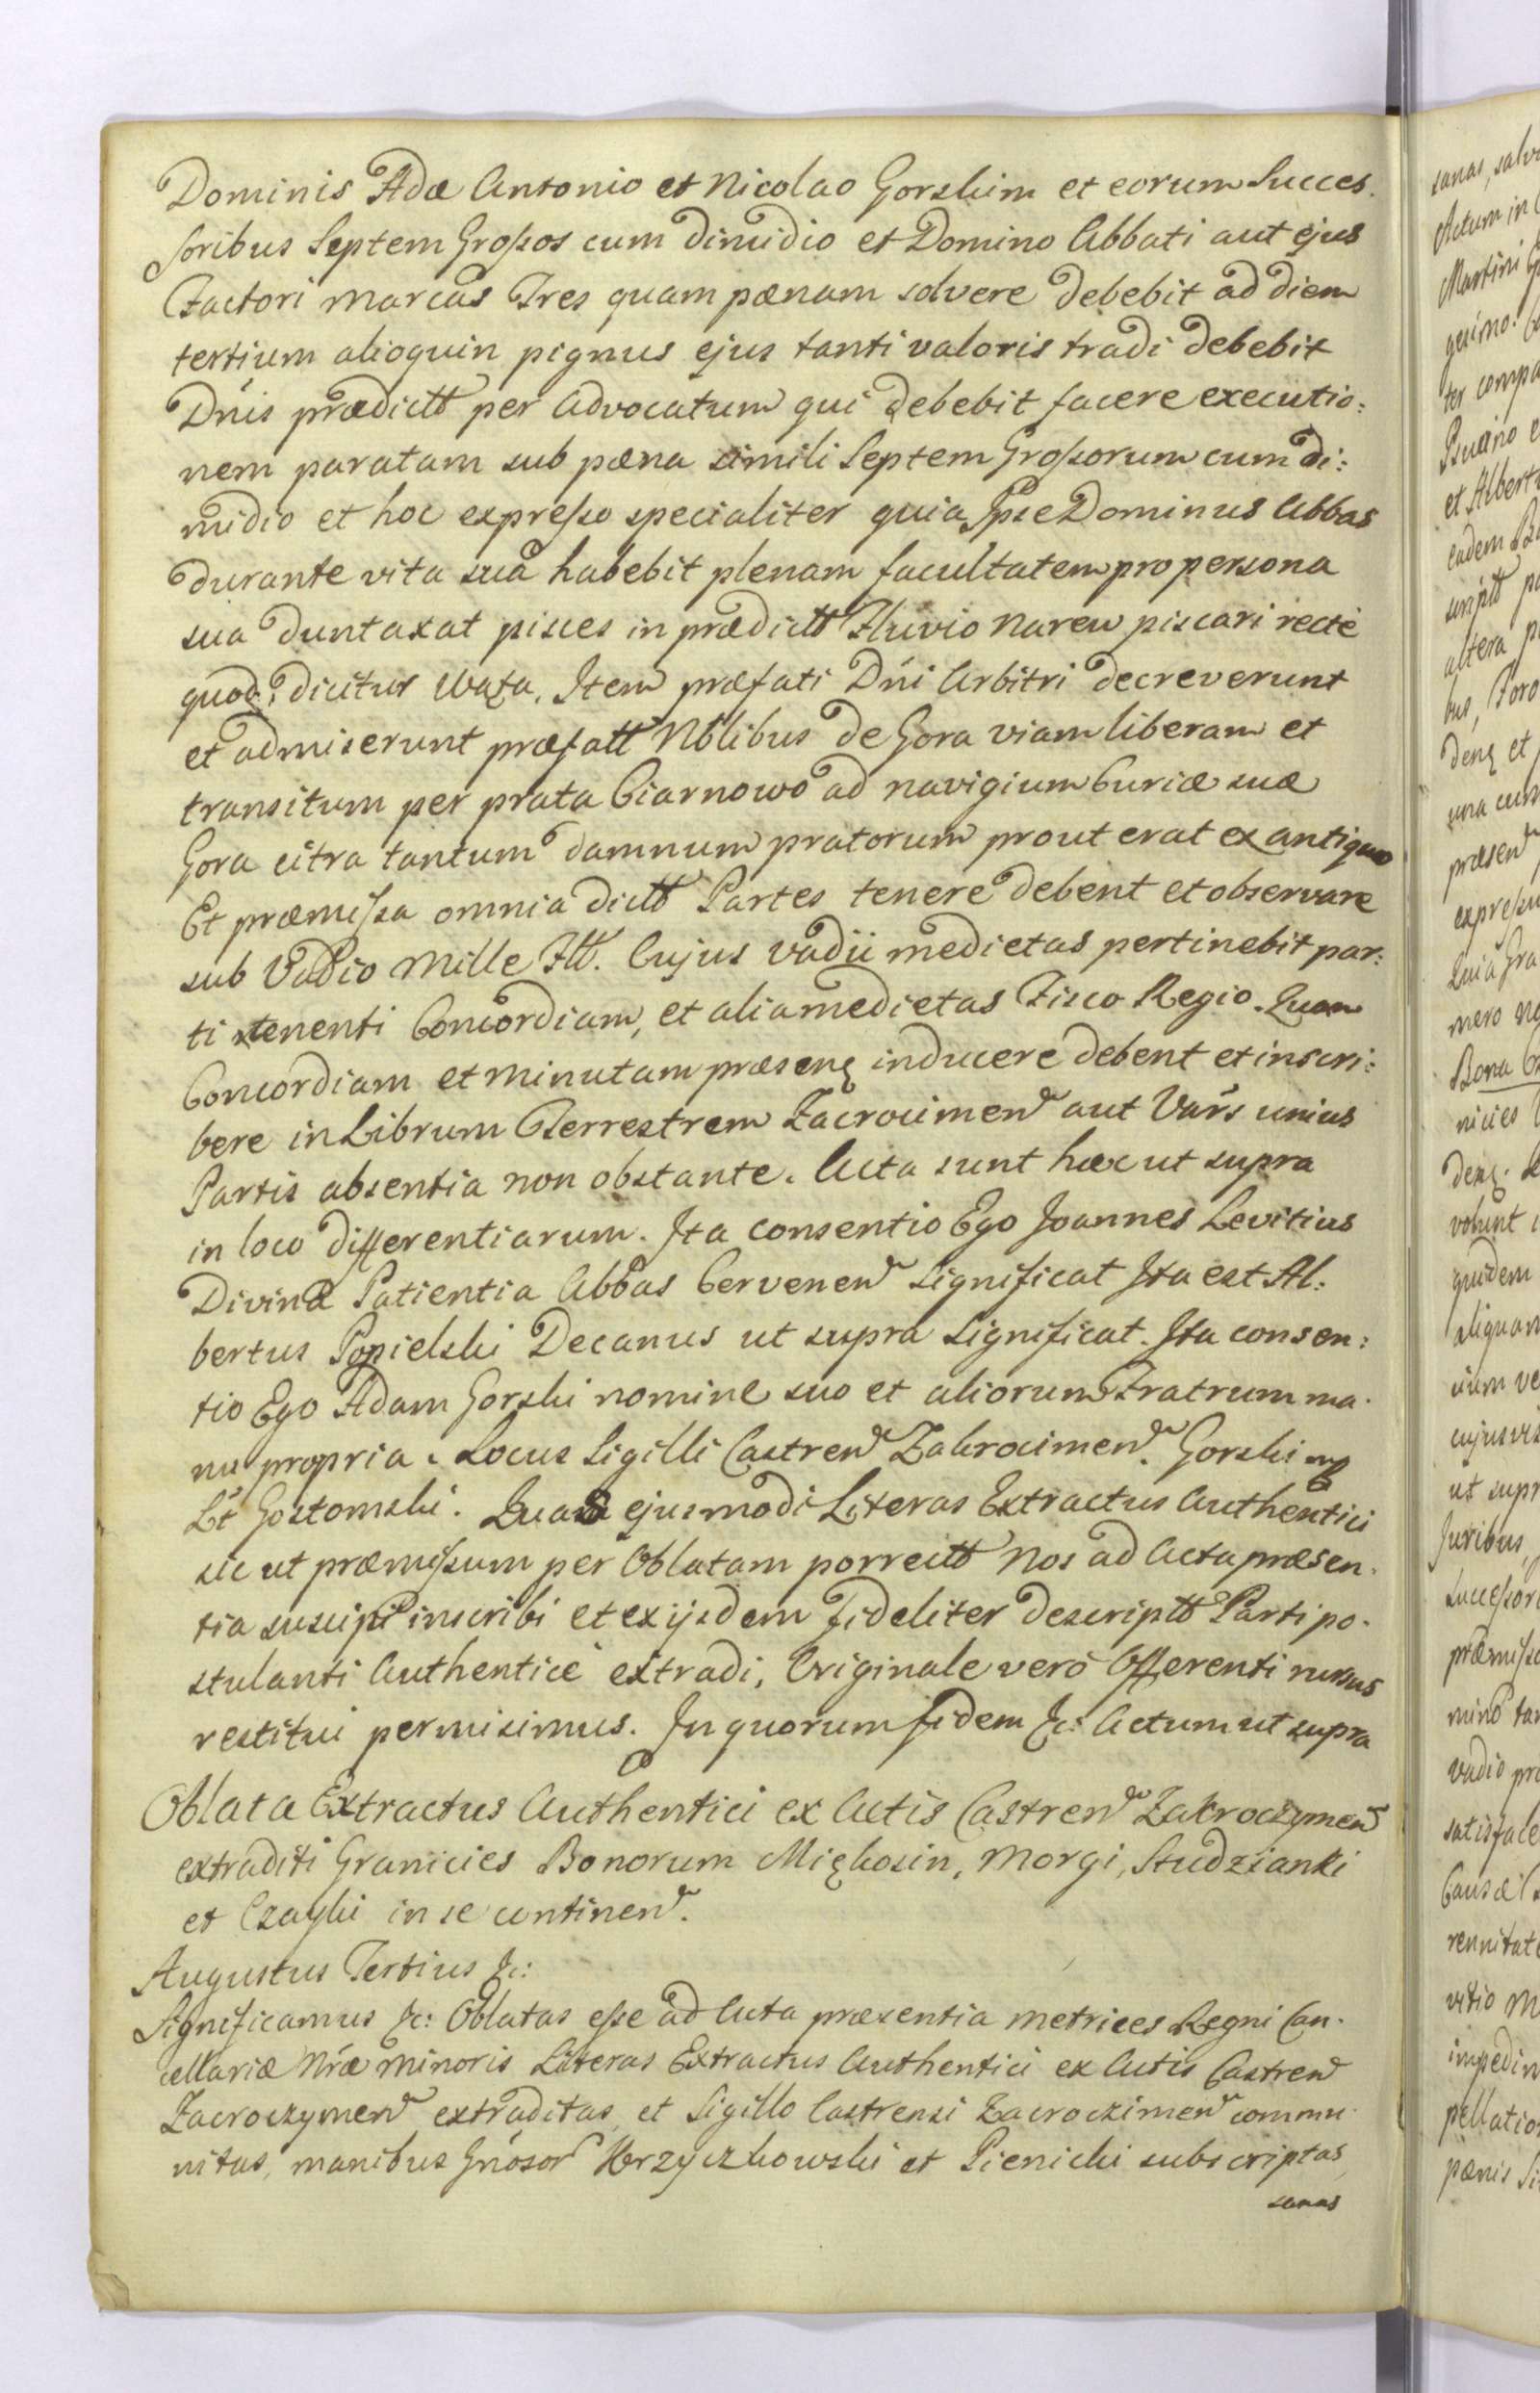 Dominis Adæ Antonio et Nicolao Gorskim et eorum Succes.
soribus Septem Grossos cum dimidio et Domino Abbati aut ejus
Factori Marcas Tres quam pœnam solvere debebit ad diem
tertium alioquin pignus ejus tanti valoris tradi debebit
Dnis prædictt per Advocatum qui debebit facere executio:
nem paratam sub pœna simili Septem Grossorum cum di:
midio et hoc expresso specialiter quia Ipse Dominus Abbas
durante vita sua habebit plenam facultatem pro persona
sua duntaxat pisces in prædictt Fluvio Narew piscari recte
quoq; dicitur Waza. Item præfati Dni Arbitri decreverunt
et admiserunt præfatt Nblibus de Gora viam liberam et
transitum per prata Czarnowo ad navigium Curiæ suæ
Gora citra tantum damnum pratorum prout erat ex antiquo
Et præmissa omnia dictt Partes tenere debent et observare
sub Vadio Mille Fll. Cujus vadii medietas pertinebit par:
ti tenenti Concordiam, et alia medietas Fisco Regio. Quam
Concordiam et minutam præsenę inducere debent et inscri:
bere in Librum Terrestrem Zacrocimen aut Vars unius
Partis absentia non obstante. Acta sunt hæc ut supra
in loco differentiarum. Ita consentio Ego Joannes Levitius
Divina Patientia Abbas Cervenen significat Ita est Al:
bertus Popielski Decanus ut supra significat. Ita consen:
tio Ego Adam Gorski nomine suo et aliorum Fratrum ma.
nu propria. Locus Sigilli Castren Zakrocimen. Gorski mp
Lt Gostomski. Quas ejusmodi Literas Extractus Authentici
sic ut præmissum per Oblatam porrectt Nos ad Acta præsen.
tia suscipi inscribi et ex ijsdem fideliter descriptt Parti po.
stulanti Authentice extradi, Originale vero Offerenti rursus
restitui permisimus. In quorum fidem &c: Actum ut supra
Oblata Extractus Authentici ex Actis Castren Zakroczymen
extraditi Granicies Bonorum Miękosin, Morgi, Studzianki
et Czayki in se continen.
Augustus Tertius &c:
Significamus &c: Oblatas esse ad Acta præsentia Metrices Regni Can.
cellariæ Nræ Minoris Literas Extractus Authentici ex Actis Castren
Zacroczymen extraditas et Sigillo Castrensi Zacroczimen commu.
nitas, manibus Gnosor Krzyczkowski et Pienicki subscriptas,
sanas
sanas, salv
Actum in
Martini
quimo.
ter compa
et Albert
eadem
scriptt
altera
bus,
denę et
una cum
præsen
expressu
Quia Gra
mero
Bona
nicies
denę.
volunt
quidem
aliquam
uium ve
cujusvis
ut supr
Juribus,
Successor
præmissa
mino tan
vadio pr
satisface
Causæ
rennitat
vitio M
impedim
pellatio
pœnis